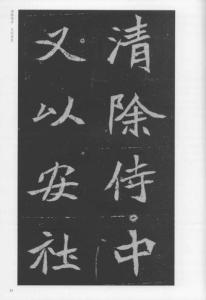 清除侍中
又以安社